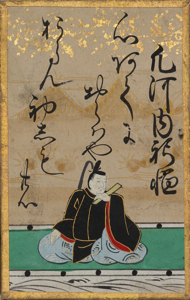 凡河内躬恒
心あてに
おらはや
おらん初しも